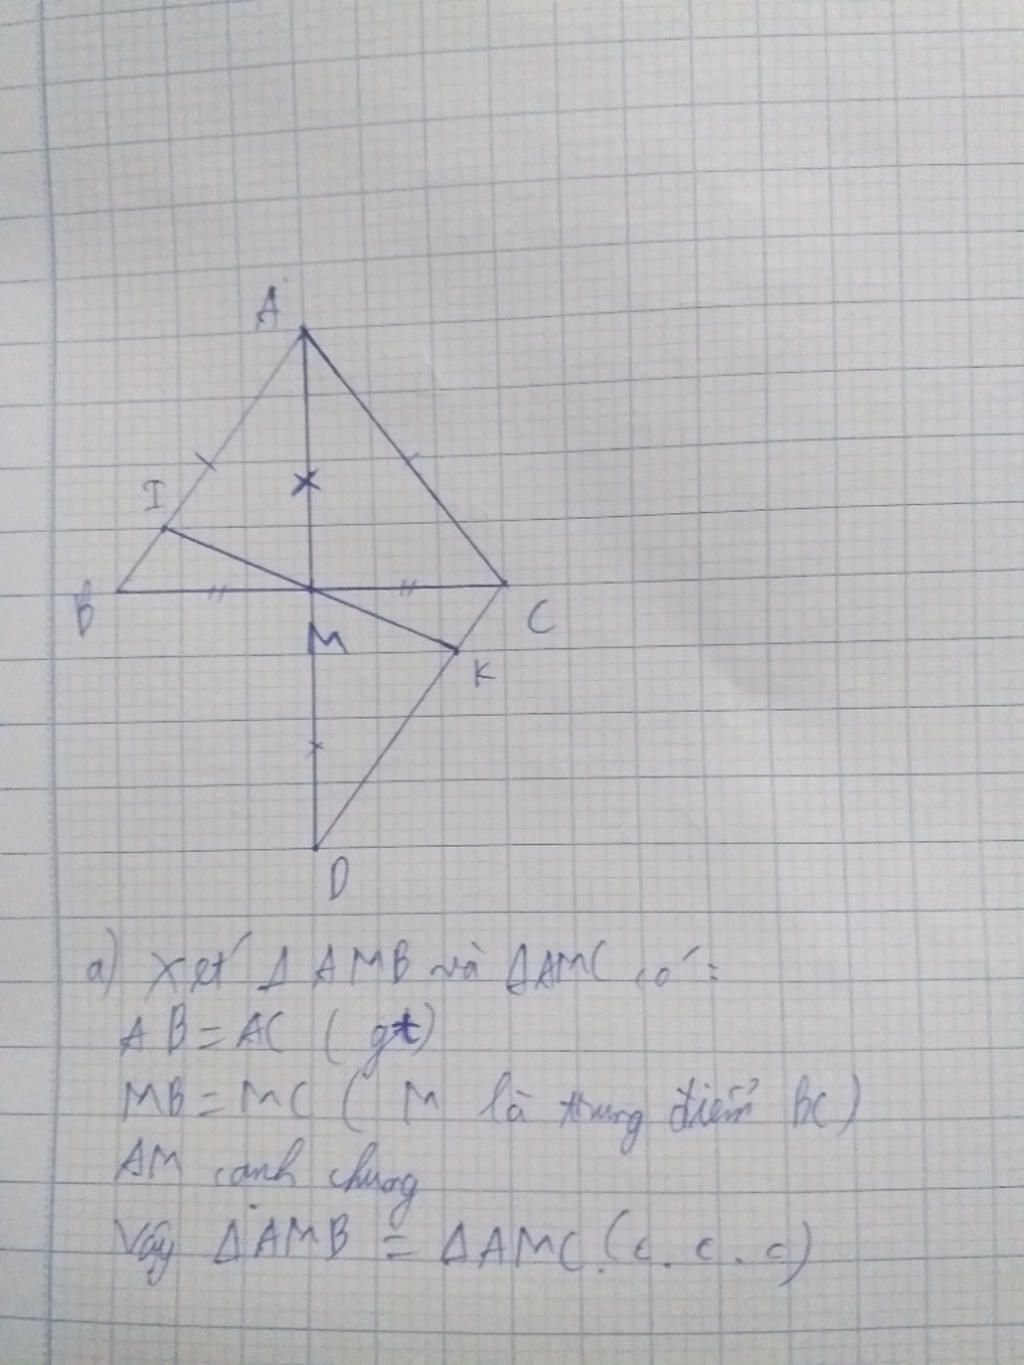 A
I
B
C
M
K
D
a) Xét Δ AMB và ΔAMC có :
AB = AC ( gt)
MB = MC ( M là trung điểm BC)
AM cạnh chung
Vậy ΔAMB = ΔAMC. (c. c. c)